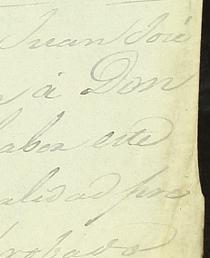 Juan José
à Don
aber este
alidad pre